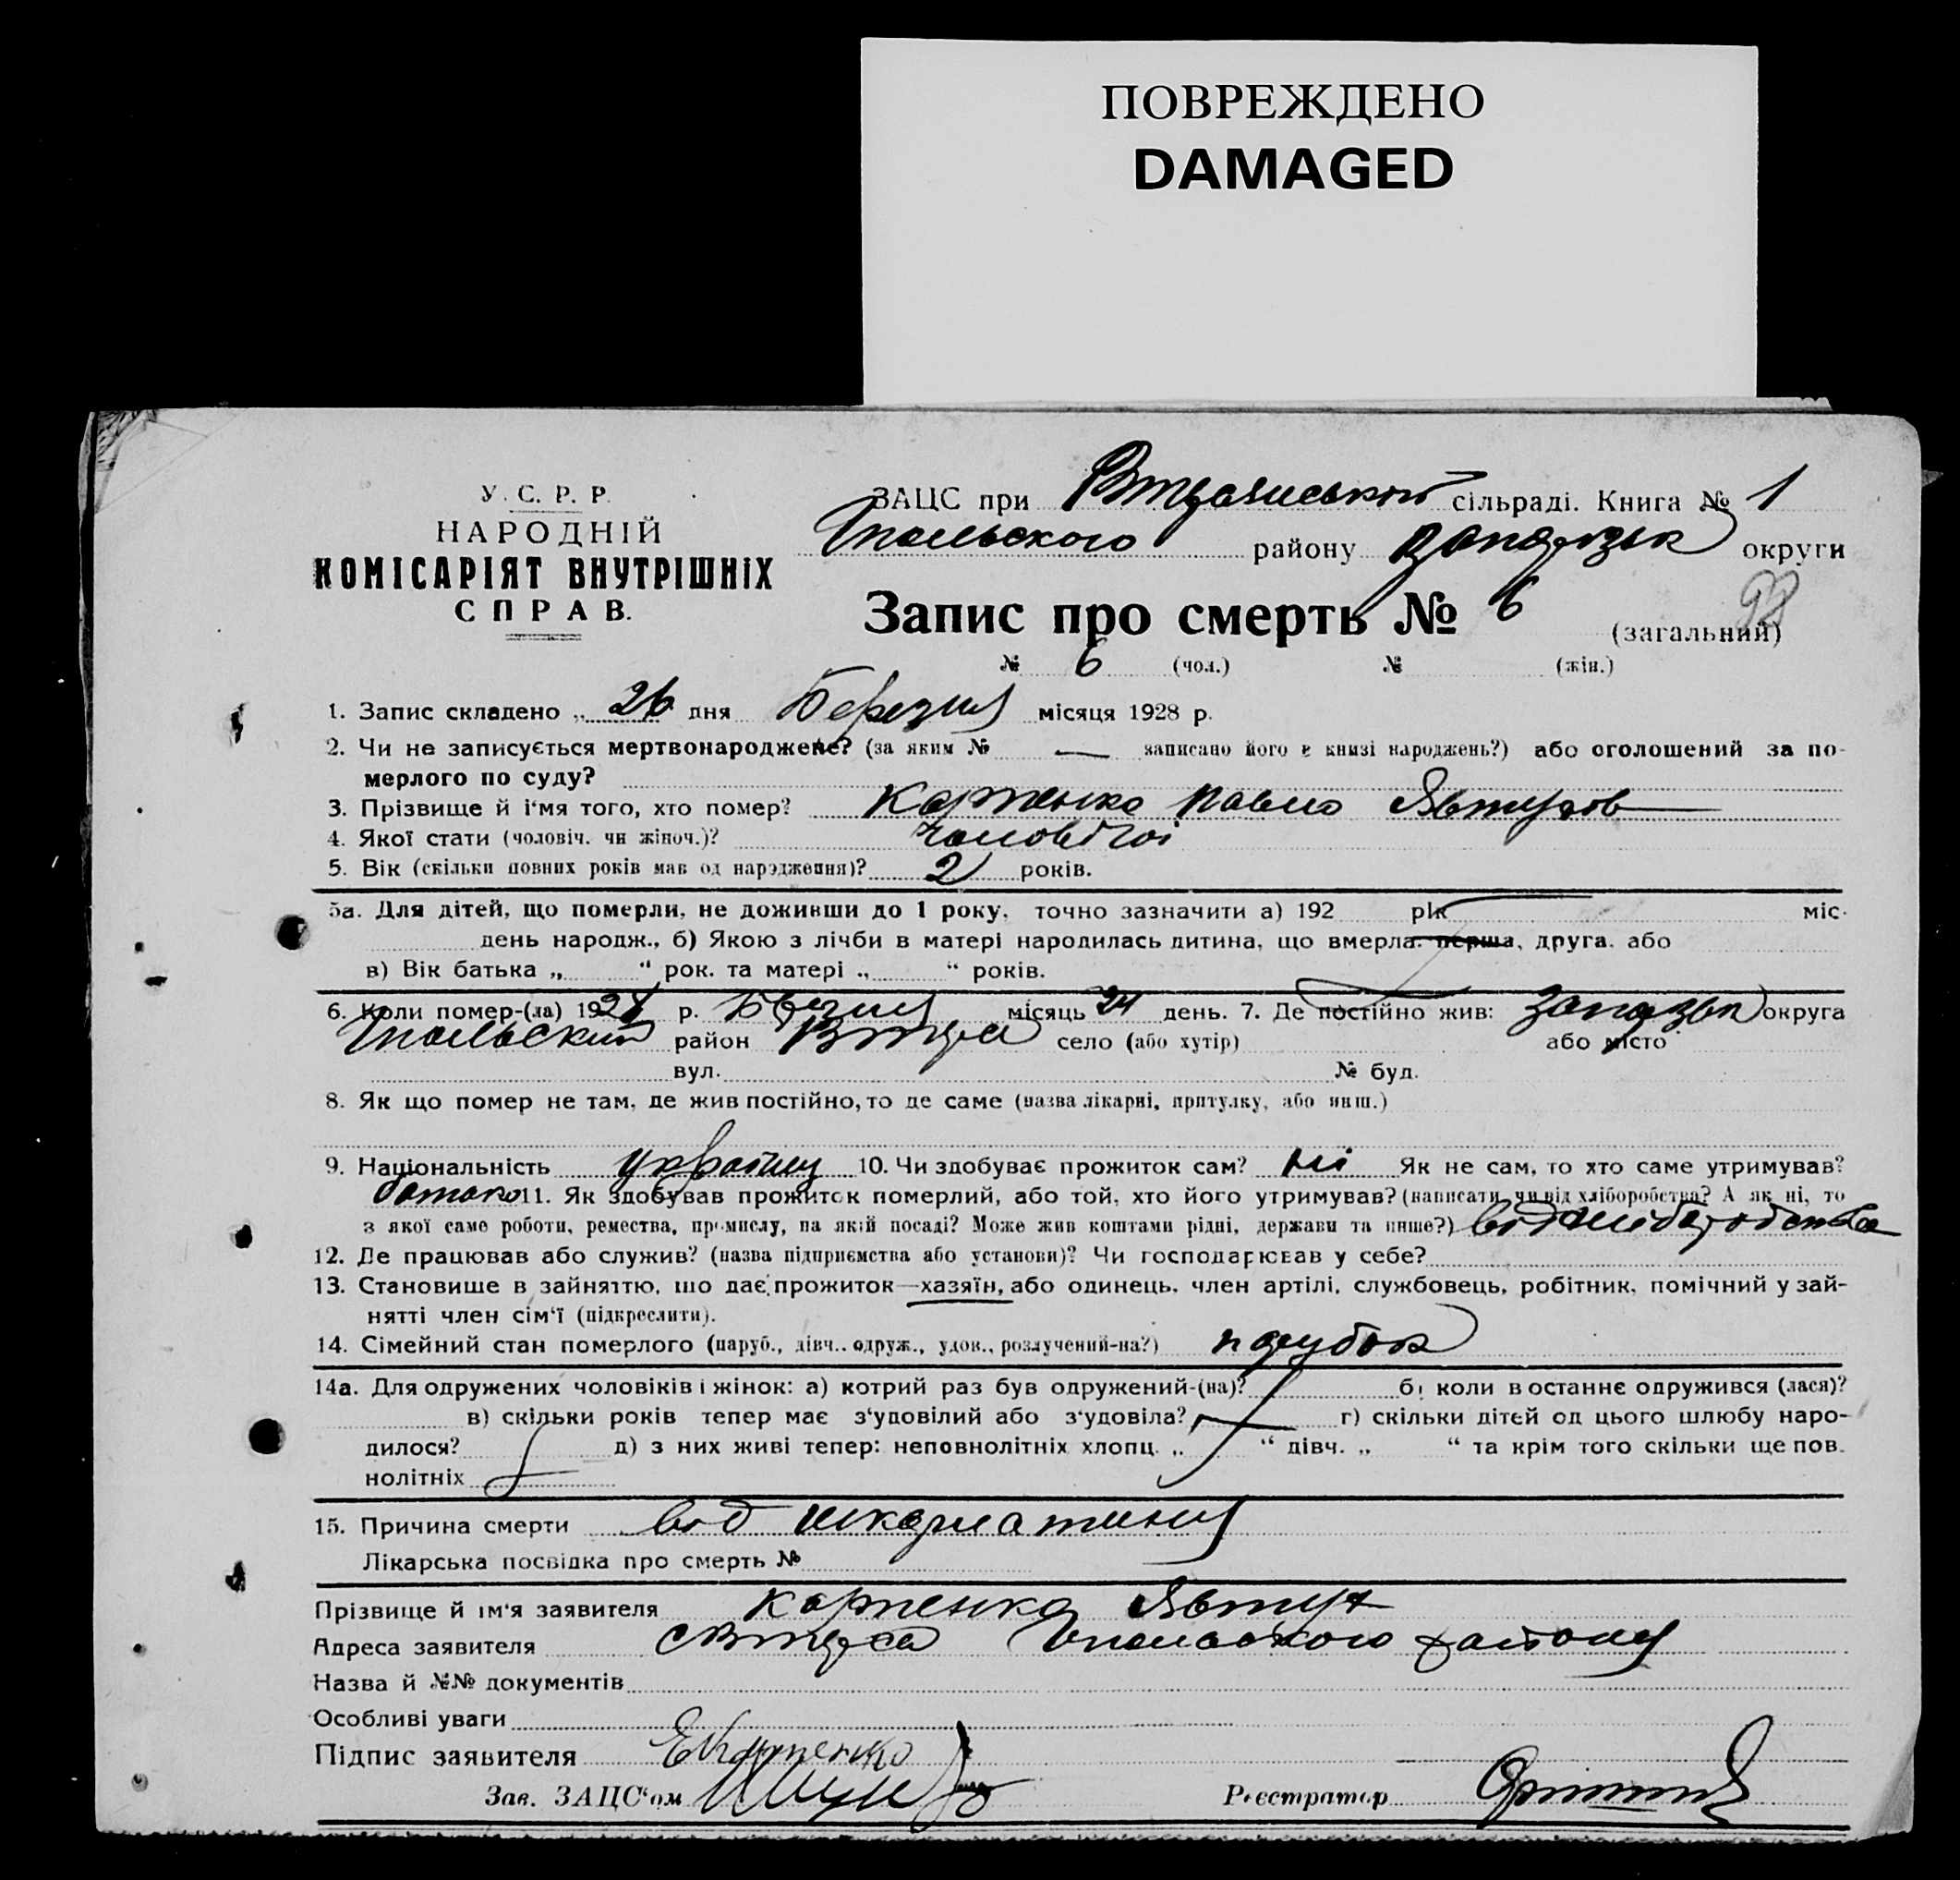 ПОВРЕЖДЕНО
DAMAGED
У. С. Р. Р.
НАРОДНІЙ
КОМІСАРІЯТ ВНУТРІШНІХ
СПРАВ.
ЗАЦС при сільраді. Книга № 1
району округи
Запис про смерть № 6 (загальний)
98
№ 6 (чол.) № (жін.)
1. Запис складено „ 26 дня Березня місяця 1928 р.
2. Чи не записується мертвонароджене? (за яким № — записано його в книзі народжень?) або оголошений за по-
мерлого по суду?
3. Прізвище й і'мя того, хто помер? Карпенко Павло Явтухов
4. Якої стати (чоловіч. чи жіноч.)? чоловічої
5. Вік (скільки повних років мав од народження)? 2 років.
5а. Для дітей, що померли, не доживши до 1 року, точно зазначити а) 192 рік міс.
день народж., б) Якою з лічби в матері народилась дитина, що вмерла: перша, друга, або
в) Вік батька „ “ рок. та матері „ “ років.
6. Коли помер-(ла) 1928 р. Березня місяць 24 день. 7. Де постійно жив: округа
район село (або хутір) або місто
вул. № буд.
8. Як що помер не там, де жив постійно, то де саме (назва лікарні, притулку, або инш.)
9. Національність 10. Чи здобуває прожиток сам? ні Як не сам, то хто саме утримував?
батько 11. Як здобував прожиток померлий, або той, хто його утримував? (написати чи від хліборобства? А як ні, то
з якої саме роботи, ремества, промислу, на якій посаді? Може жив коштами рідні, держави та инше?) від хліборобства
12. Де працював або служив? (назва підприємства або установи)? Чи господарював у себе?
13. Становище в зайняттю, що дає прожиток—хазяїн, або одинець, член артілі, службовець, робітник, помічний у зай-
нятті член сім'ї (підкреслити).
14. Сімейний стан померлого (паруб., дівч., одруж., удов., розлучений-на?) парубок
14а. Для одружених чоловіків і жінок: а) котрий раз був одружений-(на)? б) коли в останнє одружився (лася)?
в) скільки років тепер має з'удовілий або з'удовіла? г) скільки дітей од цього шлюбу наро-
дилося? д) з них живі тепер: неповнолітніх хлопц. „ “ дівч. „ “ та крім того скільки ще пов.
нолітніх
15. Причина смерти від шкарлатини
Лікарська посвідка про смерть №
Прізвище й ім'я заявителя Карпенко Явтух
Адреса заявителя району
Назва й №№ документів
Особливі уваги
Підпис заявителя Е Карпенко
Зав. ЗАЦС'ом Реєстратор